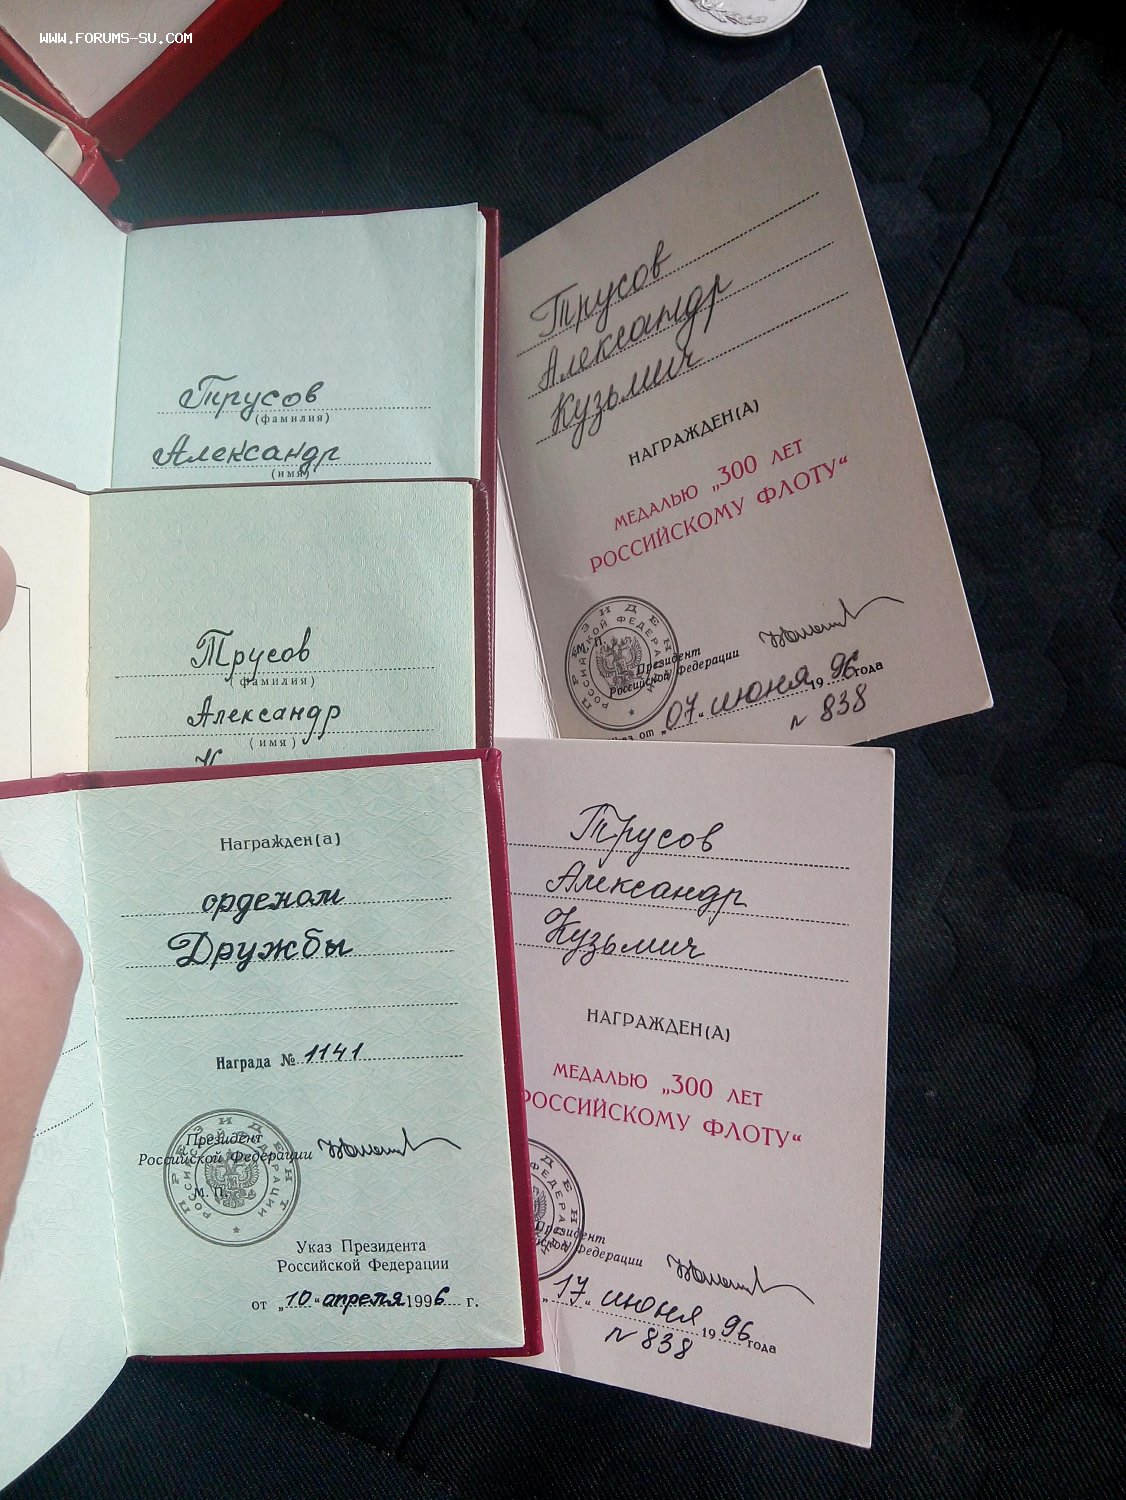 WWW.FORUMS-SU.COM
Трусов
(фамилия)
Александр
(имя)
Трусов
(фамилия)
Александр
(имя)
Награжден(а)
орденом
Дружбы
Награда № 1141
Президент
Российской Федерации
М. П.
ПРЕЗИДЕНТ
РОССИЙСКОЙ ФЕДЕРАЦИИ
Указ Президента
Российской Федерации
от „10“ апреля 1996 г.
Трусов
Александр
Кузьмич
НАГРАЖДЕН(А)
МЕДАЛЬЮ „300 ЛЕТ
РОССИЙСКОМУ ФЛОТУ“
ПРЕЗИДЕН
РОССИЙСКОЙ ФЕДЕРАЦИИ
М. П.
Президент
Российской Федерации
от „07“ июня 1996 года
№ 838
Трусов
Александр
Кузьмич
НАГРАЖДЕН(А)
МЕДАЛЬЮ „300 ЛЕТ
РОССИЙСКОМУ ФЛОТУ“
Президент
Федерации
„17“ июня 1996 года
№ 838